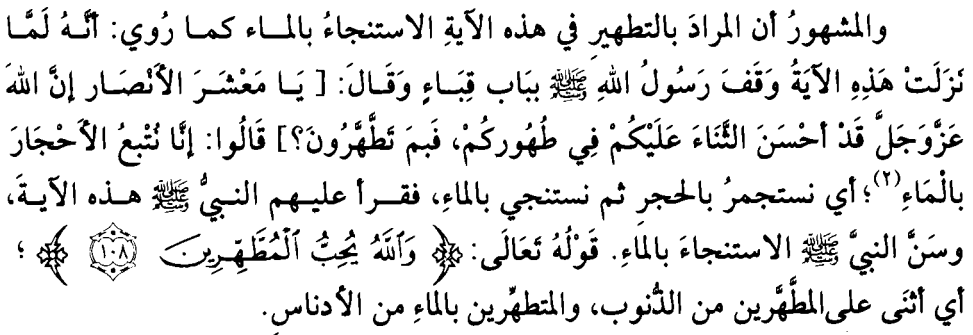 والمشهورُ أن المرادَ بالتطهيرِ في هذه الآيةِ الاستنجاءُ بالماء كما رُوي: أنَّهُ لَمَّا
نَزَلَتْ هَذِهِ الآيَةُ وَقَفَ رَسُولُ اللهِ ﷺ ببَاب قِبَاءٍ وَقَالَ: [ يَا مَعْشَرَ الأَنْصَار إنَّ اللهَ
عَزَّوَجَلَّ قَدْ أحْسَنَ الثَّنَاءَ عَلَيْكُمْ فِي طُهُوركُمْ، فَبمَ تَطَّهَّرُونَ؟] قَالُوا: إنَّا نُتْبعُ الأَحْجَارَ
بالْمَاءِ(٢)؛ أي نستجمرُ بالحجرِ ثم نستنجي بالماءِ، فقرأ عليهم النبيُّ ﷺ هذه الآيةَ،
وسَنَّ النبيَّ ﷺ الاستنجاءَ بالماءِ. قَوْلُهُ تَعَالَى: ﴿ وَٱللَّهُ يُحِبُّ ٱلْمُطَّهِّرِينَ ١٠٨ ﴾ ؛
أي أثنَى على المطَّهَّرين من الذُّنوب، والمتطهِّرين بالماءِ من الأدناسِ.